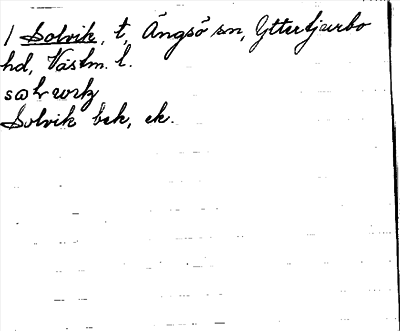 1 Solvik, t, Ängsö sn, Yttertjurbo
hd, Västm. l.
Solvik bek, ek.